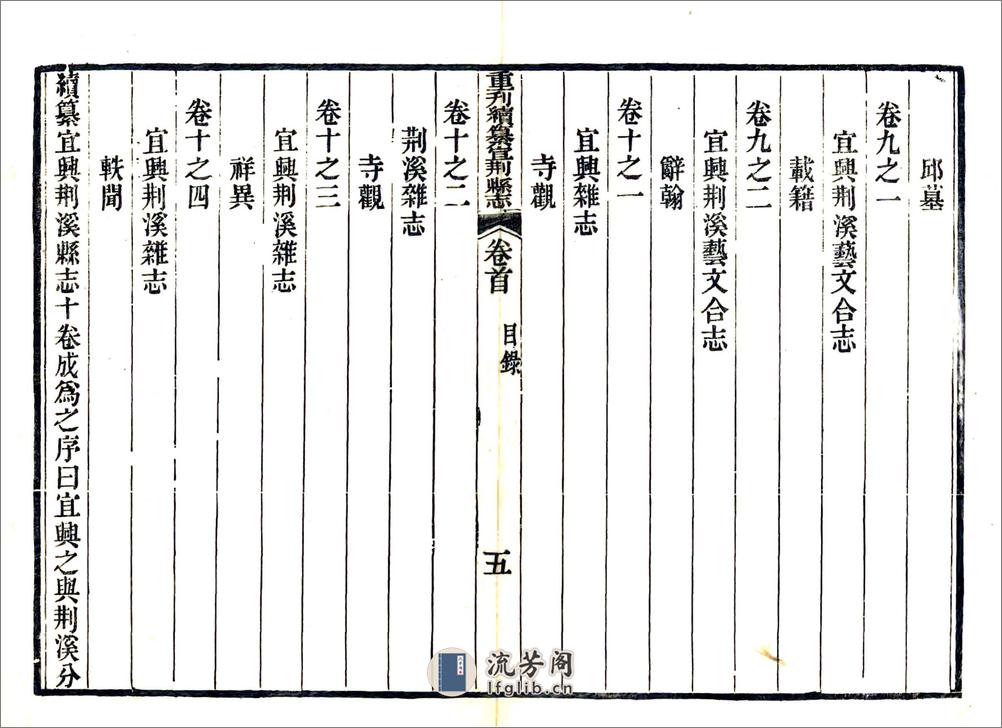 邱墓
卷九之一
宜興荆溪藝文合志
載籍
卷九之二
宜興荆溪藝文合志
辭翰
卷十之一
宜興雜志
寺觀
重刋續纂宜荆縣志
卷首
目錄
五
卷十之二
荆溪雜志
寺觀
卷十之三
宜興荆溪雜志
祥異
卷十之四
宜興荆溪雜志
軼聞
續纂宜興荆溪縣志十卷成爲之序曰宜興之與荆溪分
流芳阁
lfglib.cn